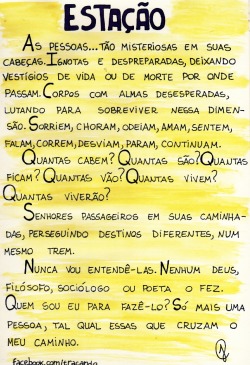 ESTAÇÃO
AS PESSOAS...TÃO MISTERIOSAS EM SUAS
CABEÇAS. IGNOTAS E DESPREPARADAS, DEIXANDO
VESTÍGIOS DE VIDA OU DE MORTE POR ONDE
PASSAM. CORPOS COM ALMAS DESESPERADAS,
LUTANDO PARA SOBREVIVER NESSA DIMEN-
SÃO. SORRIEM, CHORAM, ODEIAM, AMAM, SENTEM,
FALAM, CORREM, DESVIAM, PARAM, CONTINUAM.
QUANTAS CABEM? QUANTAS SÃO? QUANTAS
FICAM? QUANTAS VÃO? QUANTAS VIVEM?
QUANTAS VIVERÃO?
SENHORES PASSAGEIROS EM SUAS CAMINHA-
DAS, PERSEGUINDO DESTINOS DIFERENTES, NUM
MESMO TREM.
NUNCA VOU ENTENDÊ-LAS. NENHUM DEUS,
FILÓSOFO, SOCIÓLOGO OU POETA O FEZ.
QUEM SOU EU PARA FAZÊ-LO? SÓ MAIS UMA
PESSOA, TAL QUAL ESSAS QUE CRUZAM O
MEU CAMINHO.